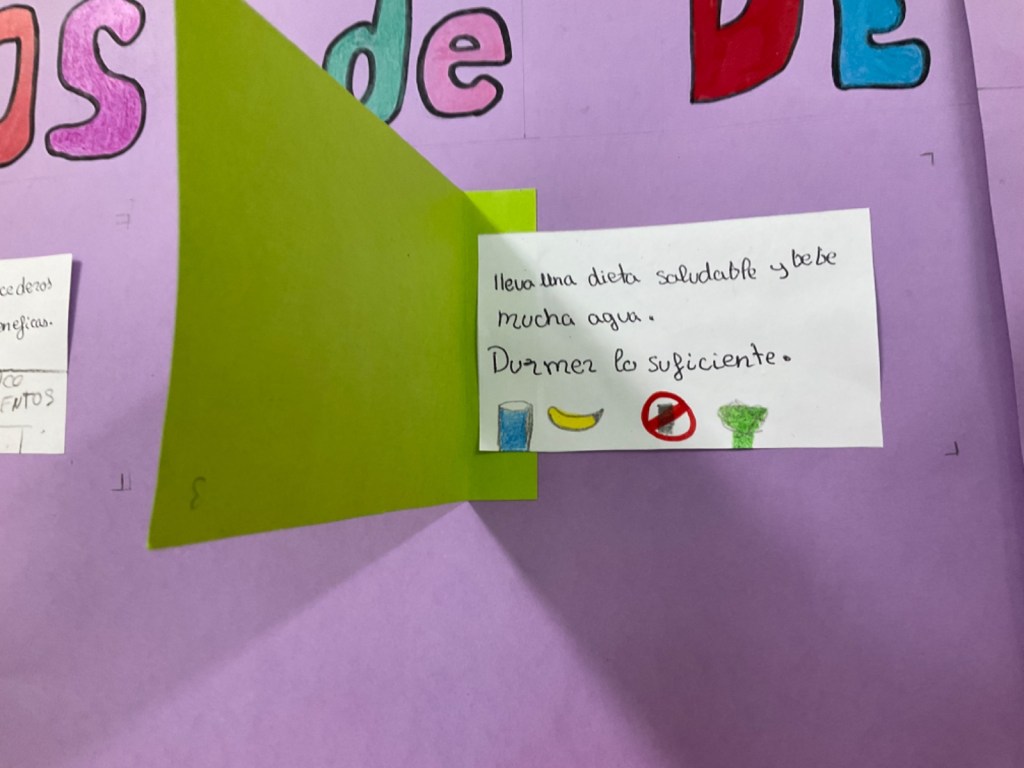 os de DE
cederos
neficas.
co
ENTOS
lleva una dieta saludable y bebe
mucha agua.
Durmer lo suficiente.
3